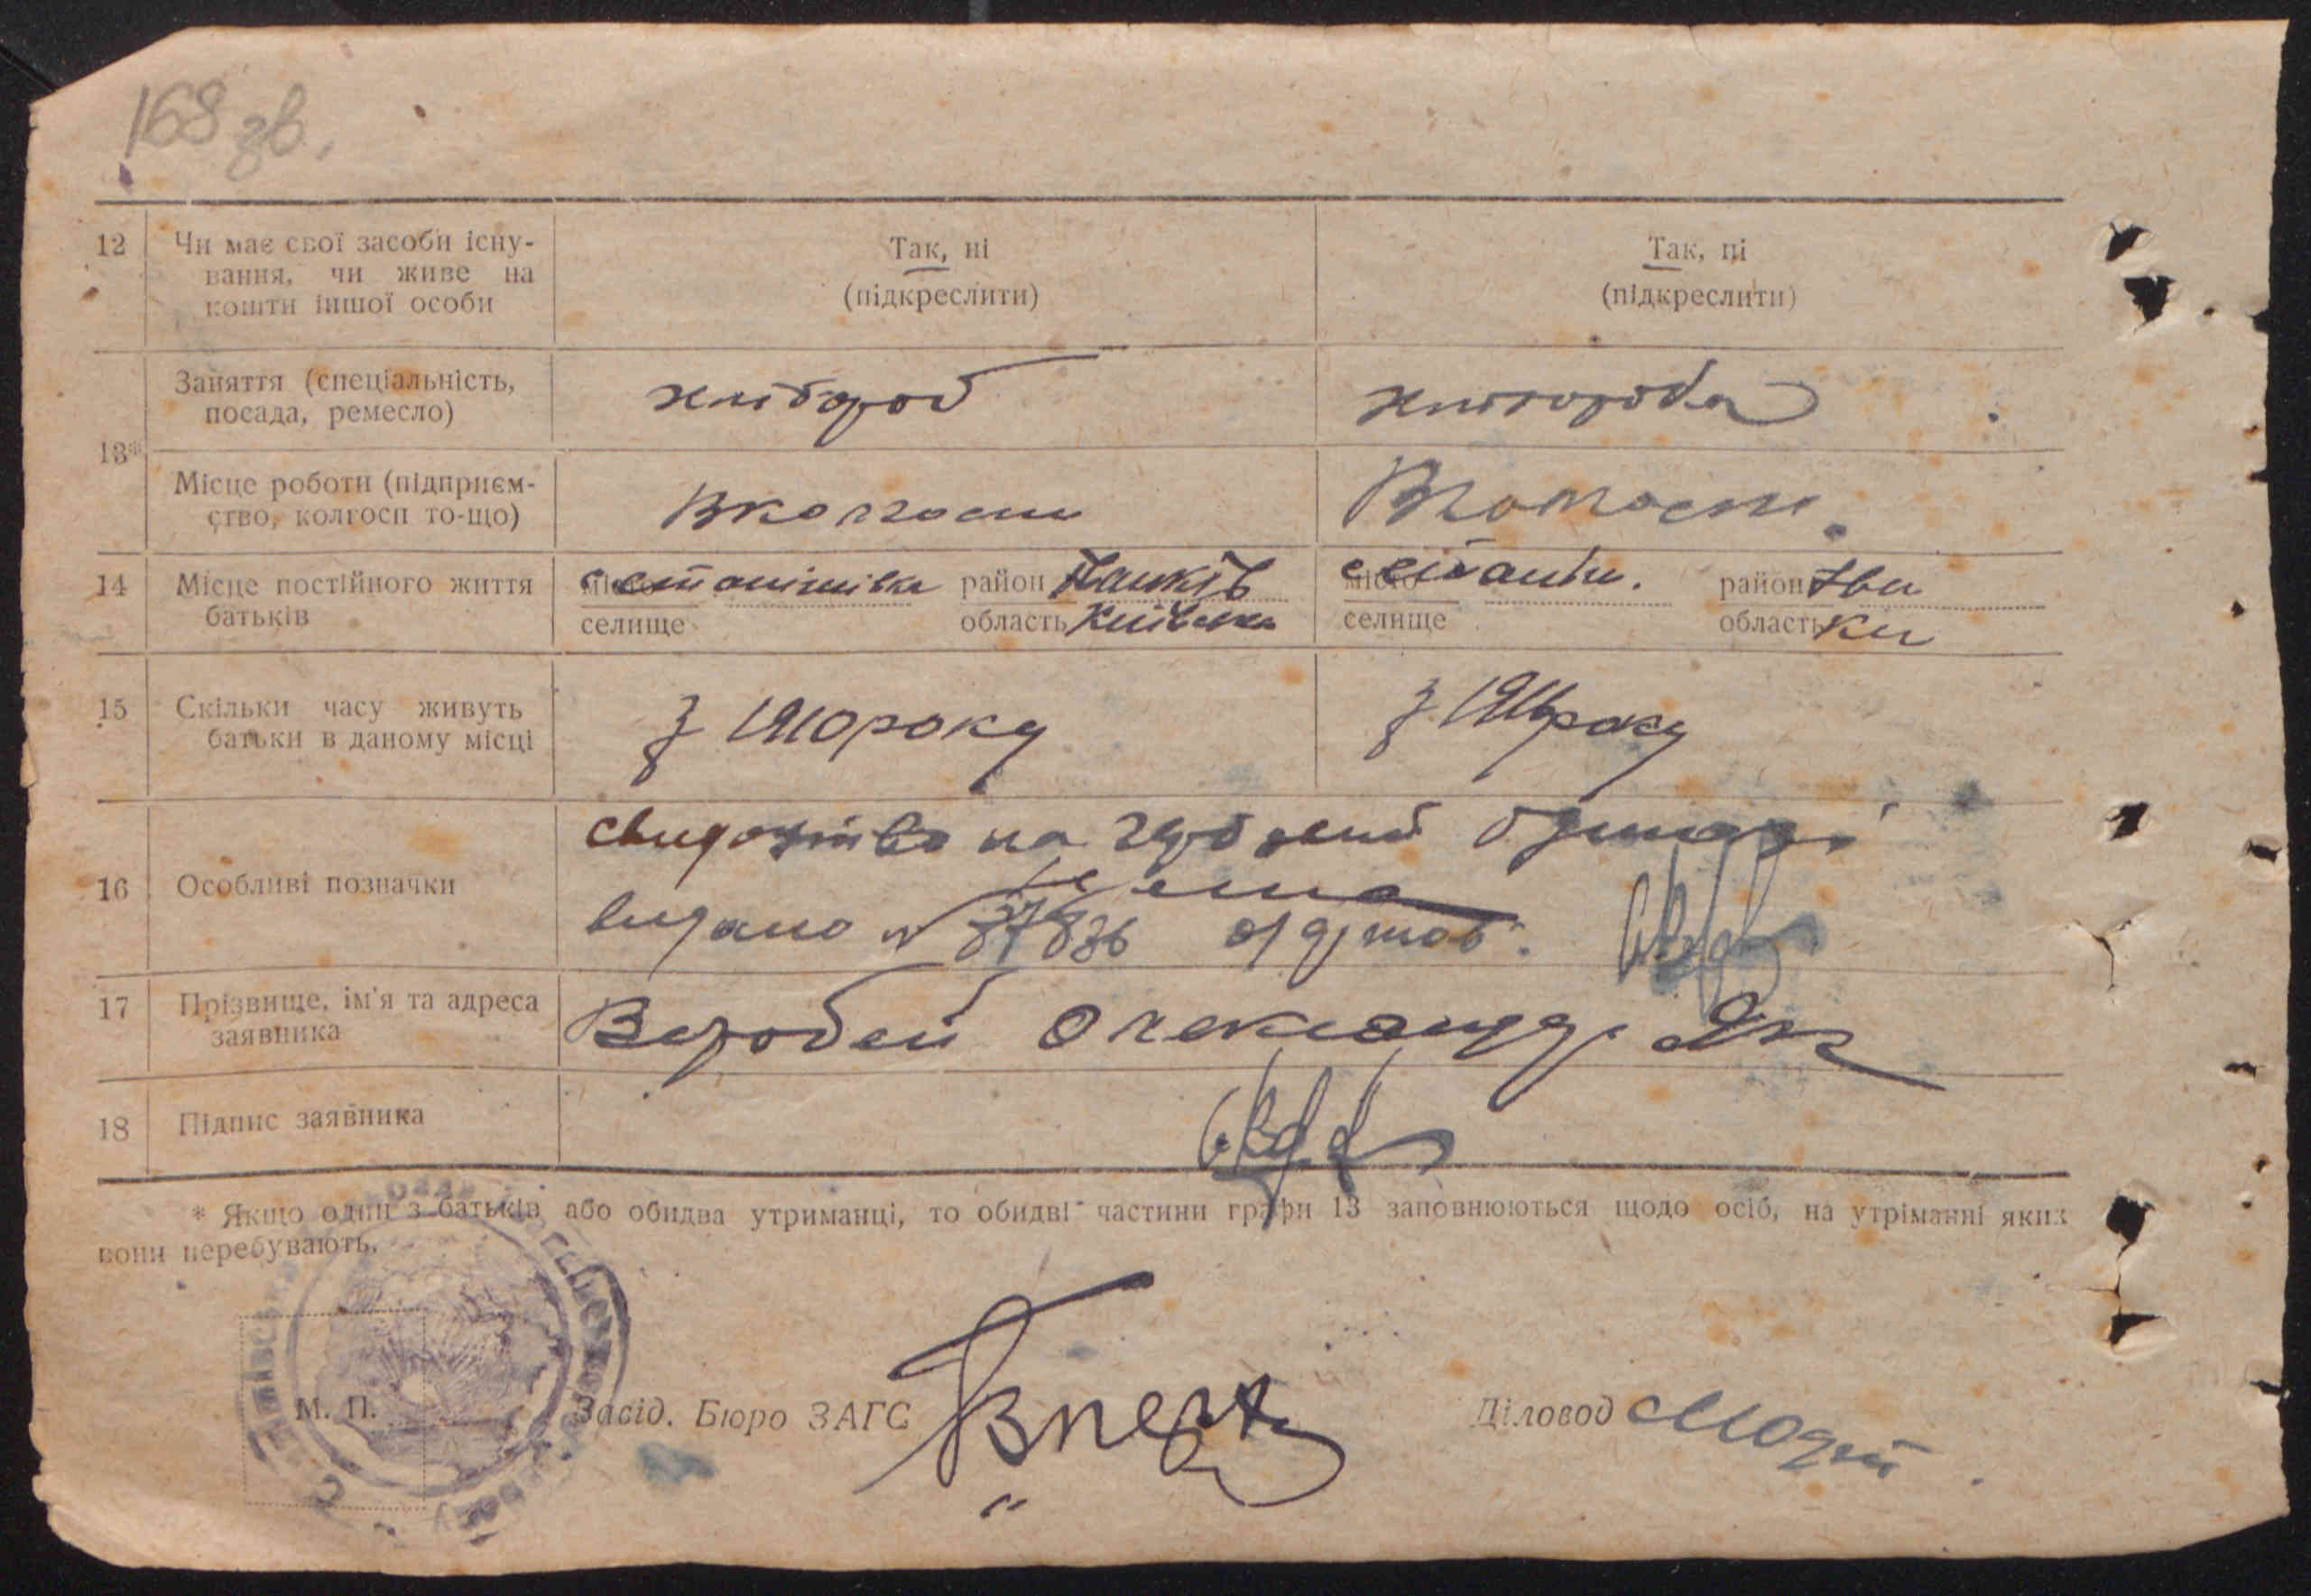 168 зв.
12 Чи має свої засоби існу-
вання, чи живе на
кошти іншої особи
Так, ні
(підкреслити)
Так, ні
(підкреслити)
13*
Заняття (спеціальність,
посада, ремесло)
хлібороб
хлібороба
Місце роботи (підприєм-
ство, колгосп то-що)
В колгоспі
В колгоспі
14 Місце постійного життя
батьків
місто
селище
район
область Київська
місто
селище
район Іван
область Ки
15 Скільки часу живуть
батьки в даному місці
з 1910 року
з 1916 року
16 Особливі позначки
свидоцтво на
видано №
17 Прізвище, ім'я та адреса
заявника
Воробей Олександр Як
18 Підпис заявника
* Якщо один з батьків або обидва утриманці, то обидві частини графи 13 заповнюються щодо осіб, на утріманні яких
вони перебувають.
М. П.
Завід. Бюро ЗАГС
Діловод